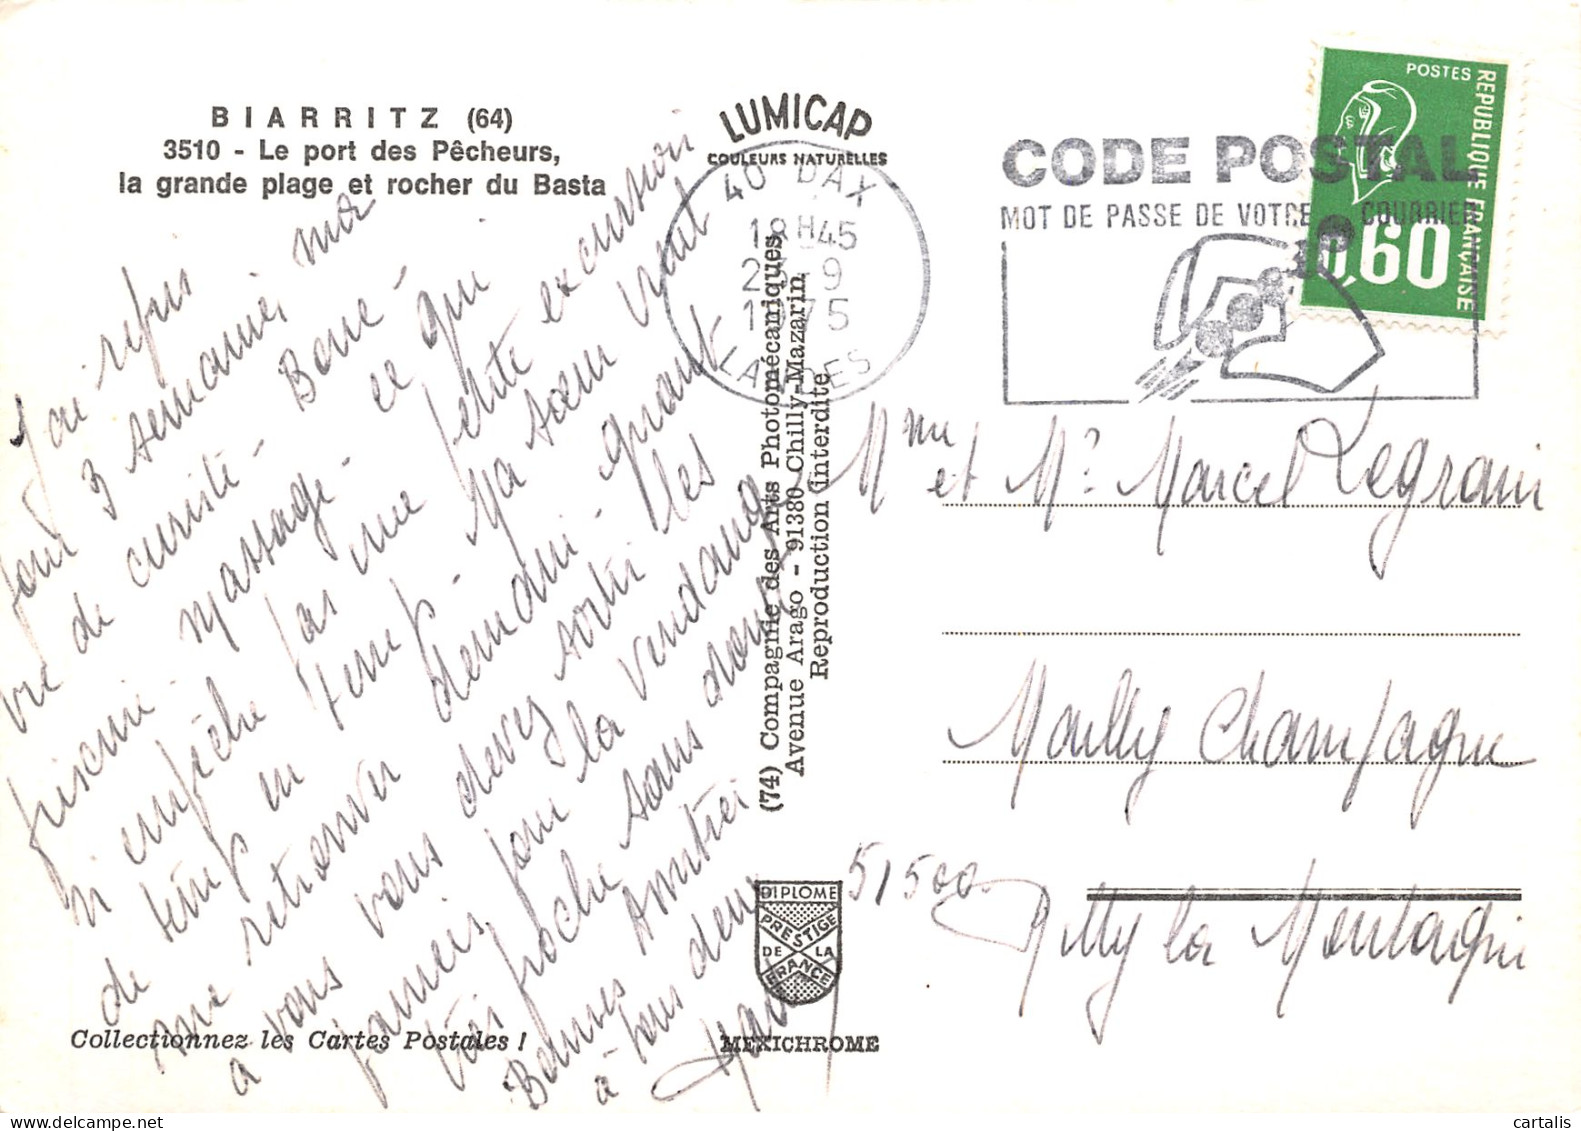 BIARRITZ (64)
3510 - Le port des Pêcheurs,
la grande plage et rocher du Basta
LUMICAP
COULEURS NATURELLES
40 DAX
18H45
23-9
1975
LANDES
CODE POSTAL
MOT DE PASSE DE VOTRE COURRIER
POSTES
REPUBLIQUE FRANÇAISE
0,60
J'ai repris
pour 3 semaines
vie de curiste -
piscine - massage - ce qui
n'empêche pas une petite excursion
de temps en temps - Ma sœur vient
me retrouver demain -
à vous vous devez sortir les
paniers pour la vendange
très proche sans doute
Bonnes Amitiés
à tous deux
(74) Compagnie des Arts Photomécaniques,
Avenue Arago - 91380 Chilly-Mazarin
Reproduction interdite
Mme et Mr Marcel Legrain
Mailly Champagne
51500 Rilly la Montagne
DIPLOME
PRESTIGE
DE LA
FRANCE
MEXICHROME
Collectionnez les Cartes Postales !
cartalis